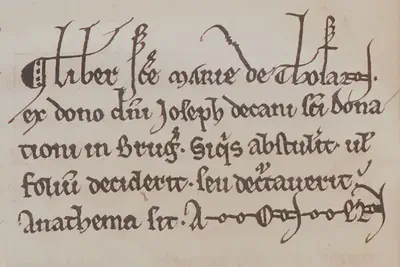 ¶ Liber sc̄e marie de Tholas.
ex dono dn̄i Joseph decani sc̄i Dona
tioni in Brug̛. Siq̄s abstulit̛. ul̛
foliū deciderit. seu dec̄taverit
Anathema sit. A